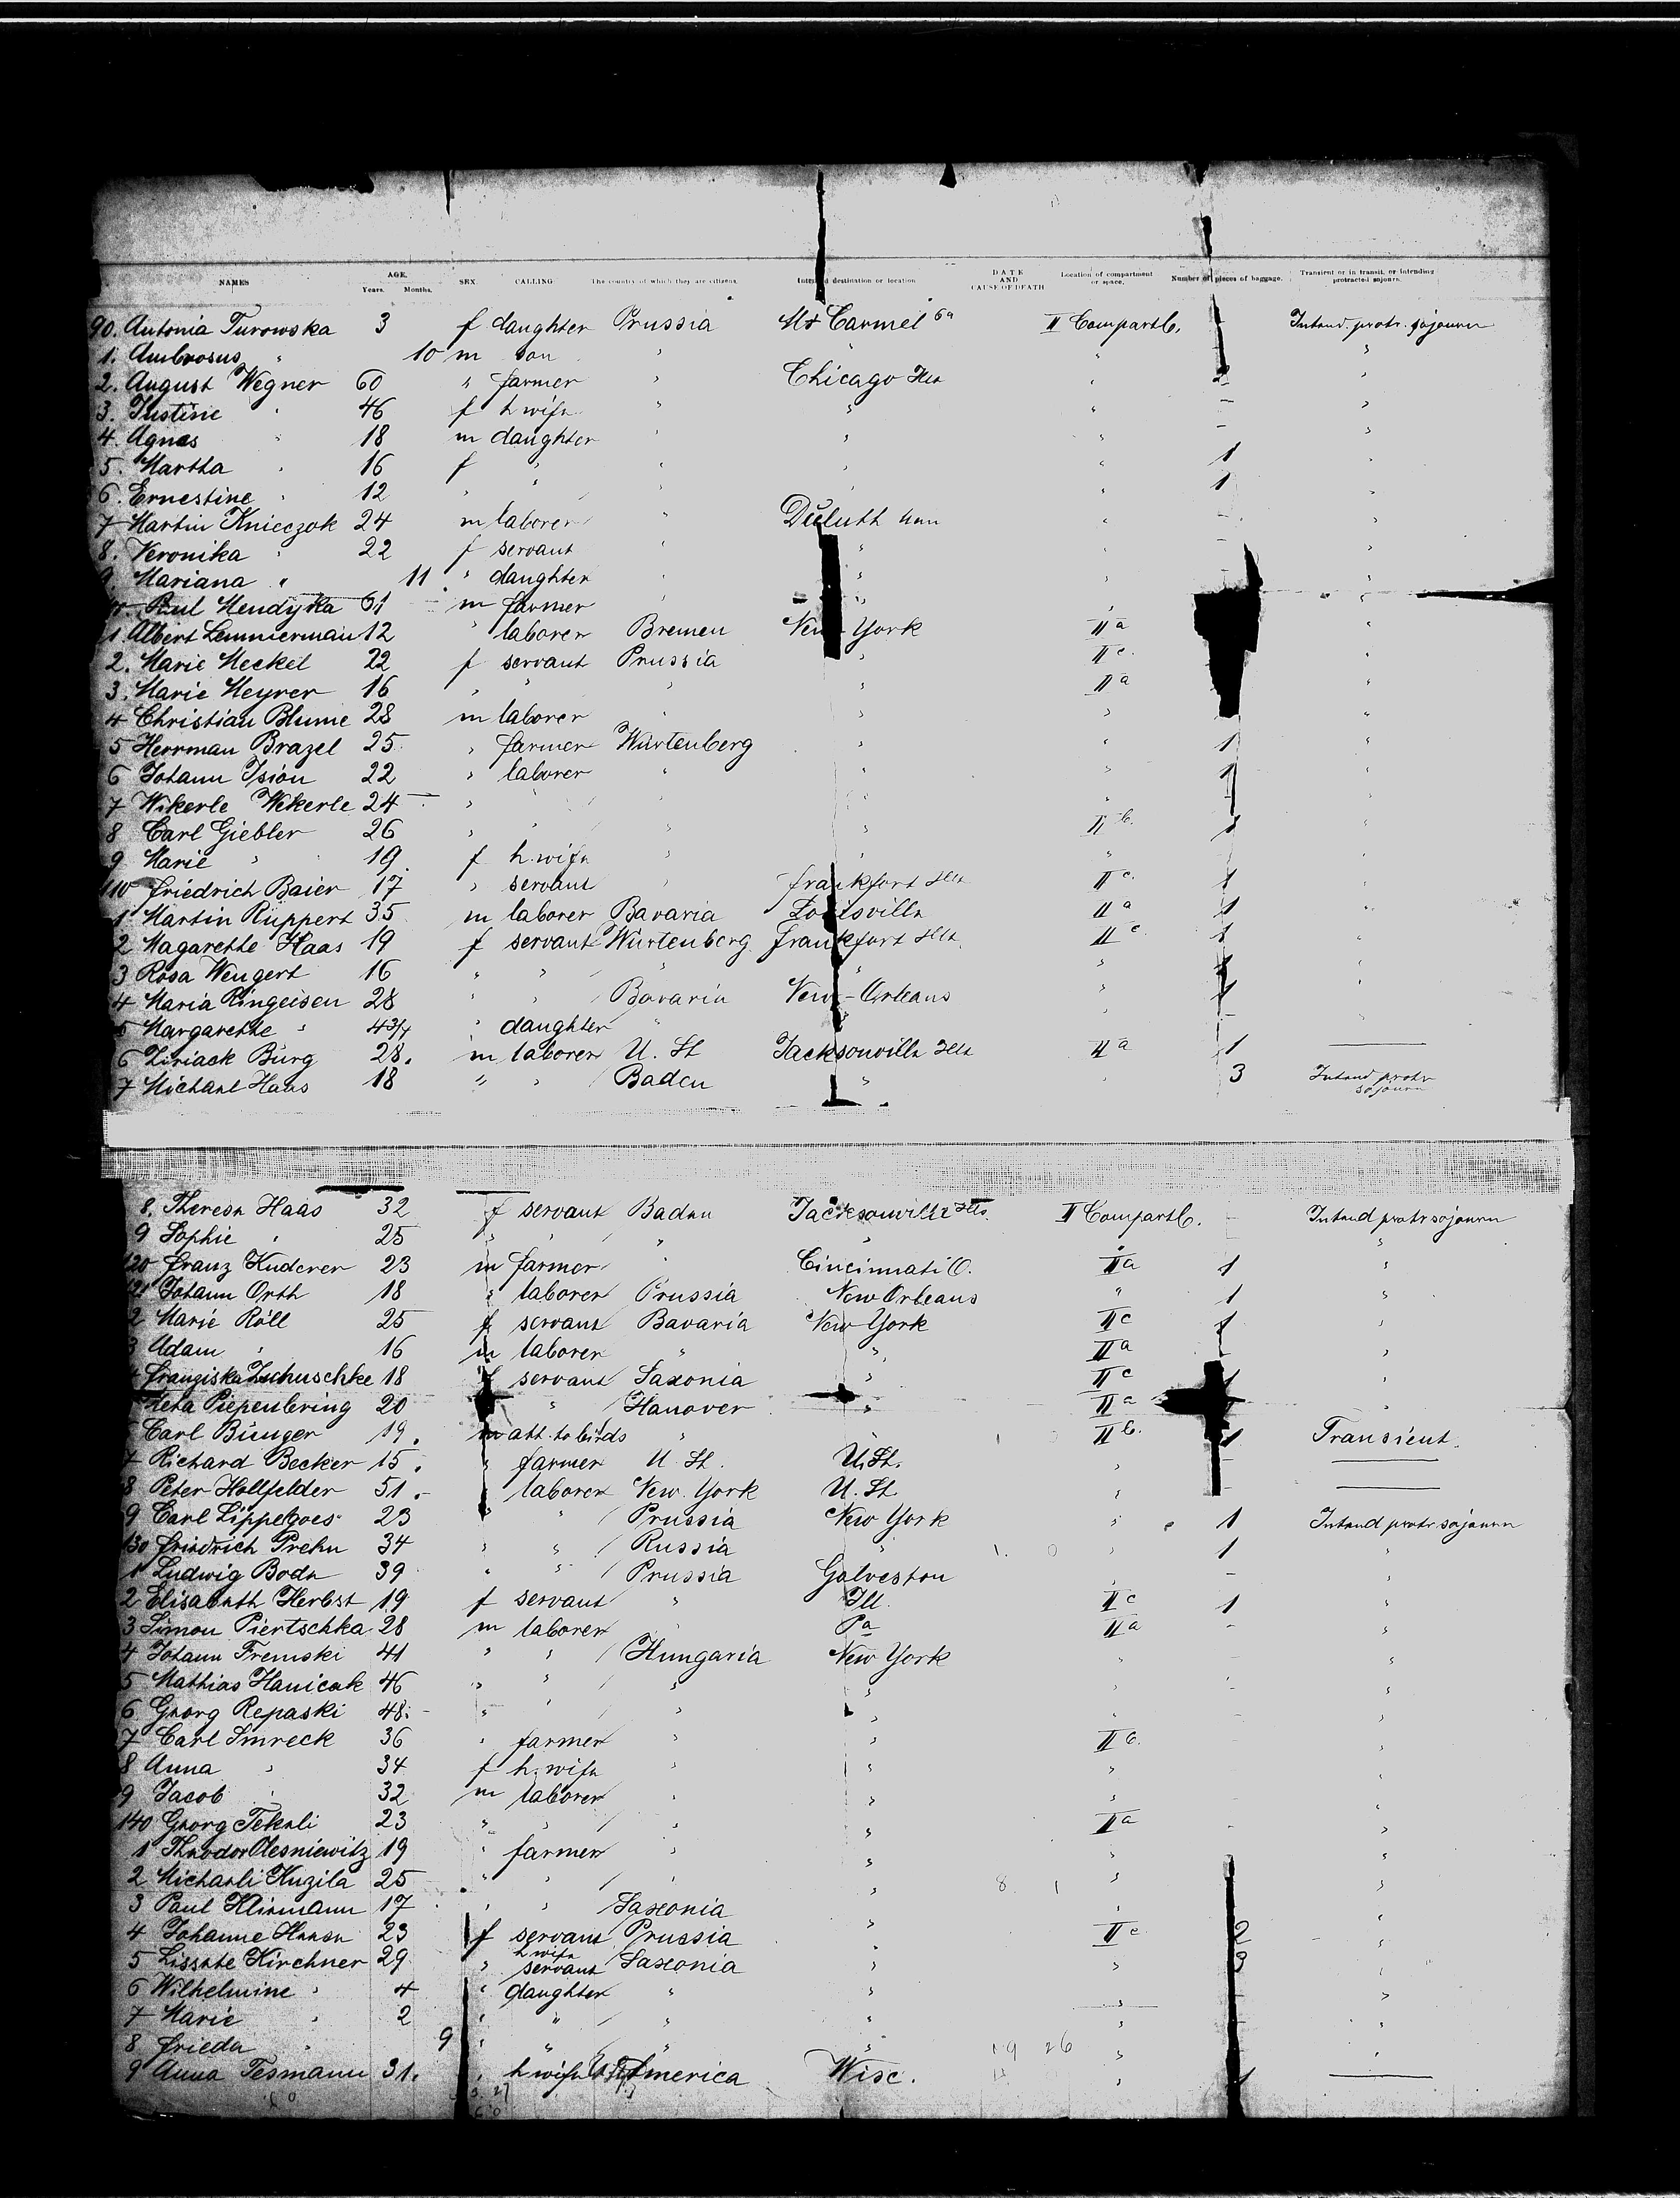 NAMES AGE. Years. Months. SEX. CALLING The country of which they are citizens. Intended destination or location DATE AND CAUSE OF DEATH Location of compartment or space. Number of pieces of baggage. Transient or in transit, or intending protracted sojourn.
90. Antonia Turowska 3 f daughter Prussia Mt Carmel II Compart b. Intend. protr. sojourn
1. Ambrosus " 10 m son " " " "
2. August Wegner 60 " farmer " Chicago Ills " 2 "
3. Justine " 46 f h wife " " " - "
4. Agnes " 18 m daughter " " " - "
5. Martha " 16 f " " " " 1 "
6. Ernestine " 12 " " " " " 1 "
7 Martin Knieczok 24 m laborer " Duluth " - "
8. Veronika " 22 f servant " " " - "
9. Mariana " 11 " daughter " " " "
Paul Mendyka 61 m farmer " " " "
1 Albert Lemmerman 12 " laborer Bremen New-York II a "
2. Marie Meckel 22 f servant Prussia " II c. "
3. Marie Meyrer 16 " " " " II a "
4 Christian Blume 28 m laborer " " " "
5 Herrman Brazel 25 " farmer Würtenberg " " 1 "
6 Johann Ision 22 " laborer " " " 1 "
7 Wikerle Wekerle 24 " " " " " - "
8 Carl Giebler 26 " " " " II b. 1 "
9 Marie " 19. f h. wife " " "
110 Friedrich Baier 17 " servant " Frankfort Ills II c. 1 "
1 Martin Rüppert 35 m laborer Bavaria Louisville II a 1 "
2 Magarethe Haas 19 f servant Würtenberg Frankfort Ills II c 1 "
3 Rosa Wengert 16 " " " " " 1 "
4 Maria Ringeisen 28 " " Bavaria New-Orleans " 1 "
5 Margarethe " 4 3/4 " daughter " " " - "
6 Ziriack Bürg 28. m laborer U. St Jacksonville Ills II a 1
7 Michael Haas 18 " " Baden " " 3 Intend protr sojourn
8. Therese Haas 32 f servant Baden Jacksonville Ills. II Compart b. - Intend protr sojourn
9 Sophie " 25 " " " " " "
120 Franz Kuderer 23 m farmer " Cincinnati O. II a 1 "
121 Johann Orth 18 " laborer Prussia New Orleans " 1 "
2 Marie Röll 25 f servant Bavaria New York II c 1 "
3 Adam " 16 m laborer " " II a - "
4 Franziska Zschuschke 18 f servant Saxonia " II c 1 "
Meta Piepenbring 20 " Hanover " II a "
Carl Bünger 19. m att. to birds " II b. 1 Transient.
7 Richard Becker 15. " farmer U. St. U. St. " -
8 Peter Hollfelder 51. " laborer New York U. St. "
9 Carl Lippelgoes 23 " " Prussia New York " 1 Intend protr sojourn
130 Friedrich Prehn 34 " " Russia " " 1 "
1 Ludwig Bode 39 " " Prussia Galveston " - "
2 Elisabeth Herbst 19 f servant " Ill. II c 1 "
3 Simon Piertschka 28 m laborer " Pa II a - "
4 Johann Fremski 41 " " Hungaria New York " - "
5 Mathias Hanicak 46 " " " " " - "
6 Georg Repaski 48. " " " " " - "
7 Carl Smreck 36 " farmer " " II b. "
8 Anna " 34 f h. wife " " " "
9 Jacob " 32 m laborer " " " "
140 Georg Tekeli 23 " " " " II a - "
1 Theodor Olesniewitz 19 " farmer " " " "
2 Michaeli Kuzila 25 " " " " " "
3 Paul Klinmann 17 " " Saxonia " " "
4 Johanne 23 f servant Prussia " II c 2 "
5 Lissette Kirchner 29 " h wife servant Saxonia " " 3 "
6 Wilhelmine " 4 " daughter " " " "
7 Marie " 2 " " " " " "
8 Frieda " 9 " " " " " "
9 Anna Tesmann 31. " h wife America Wisc. " 1